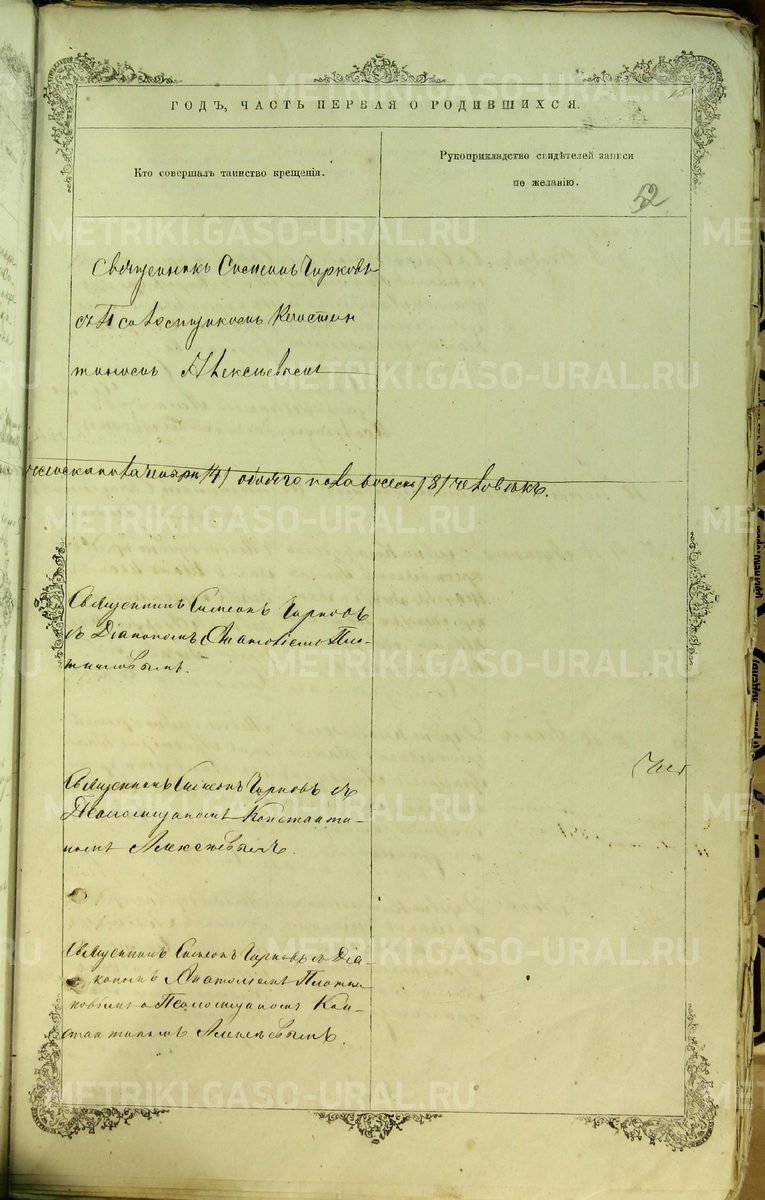 ГОДЪ, ЧАСТЬ ПЕРВАЯ О РОДИВШИХСЯ.
Кто совершалъ таинство крещенія.
Рукоприкладство свидѣтелей записи
по желанію.
52
Священникъ Симеонъ Чирковъ
съ Псаломщикомъ Констан
тиномъ Алексѣевымъ
пола четыри /4/ обоего пола восемь /8/ человѣкъ.
Священникъ Симеонъ Чирковъ
съ Діакономъ Анатоліемъ Пло-
тниковымъ.
Священникъ Симеонъ Чирковъ съ
Псаломщикомъ Константи-
номъ Алексѣевымъ.
Священникъ Симеонъ Чирковъ съ Діа-
кономъ Анатоліемъ Плотни
ковымъ и Псаломщикомъ Кон-
стантиномъ Алексѣевымъ.
METRIKI.GASO-URAL.RU